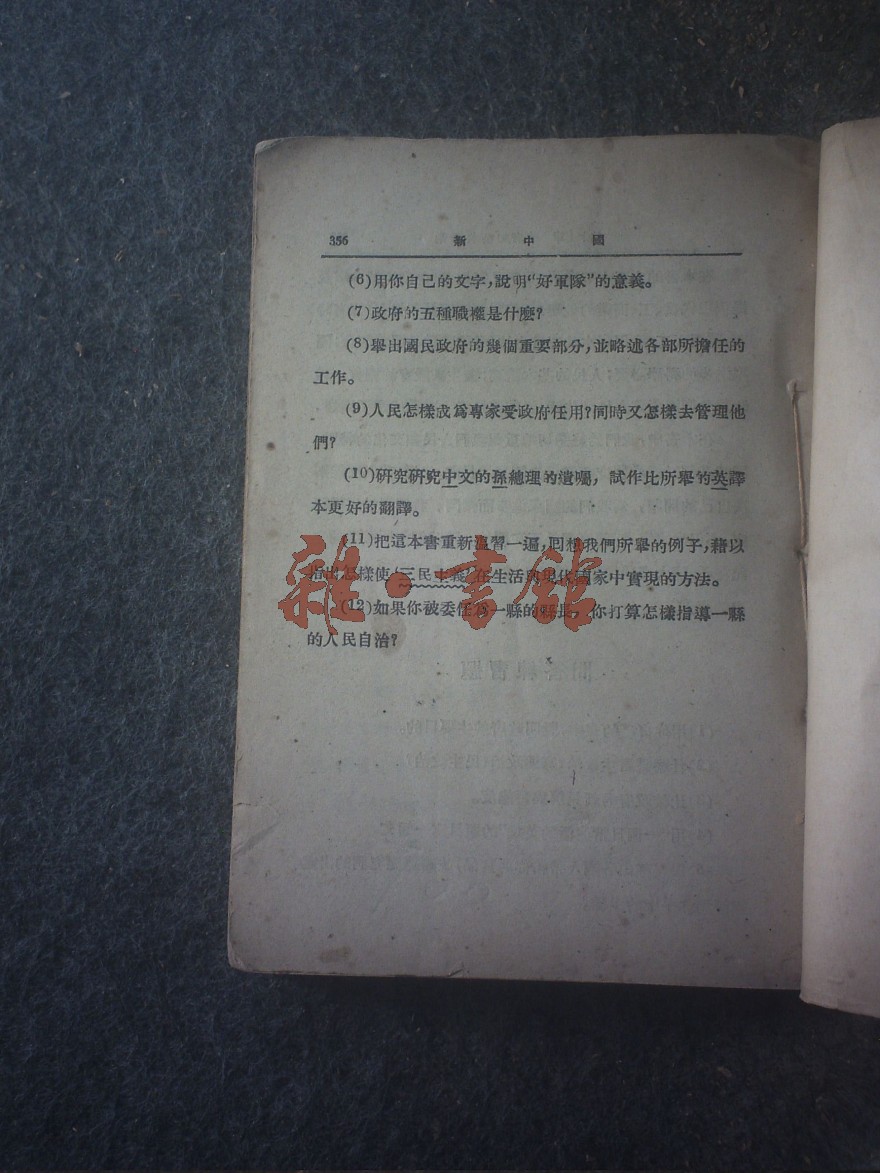 356 新中國
(6)用你自己的文字,說明“好軍隊”的意義。
(7)政府的五種職權是什麼?
(8)舉出國民政府的幾個重要部分,並略述各部所擔任的
工作。
(9)人民怎樣成爲專家受政府任用?同時又怎樣去管理他
們?
(10)研究研究中文的孫總理的遺囑,試作比所舉的英譯
本更好的翻譯。
(11)把這本書重新溫習一遍,回想我們所舉的例子,藉以
指出怎樣使“三民主義”在生活與現代國家中實現的方法。
(12)如果你被委任爲一縣的縣長,你打算怎樣指導一縣
的人民自治?
雜·書館